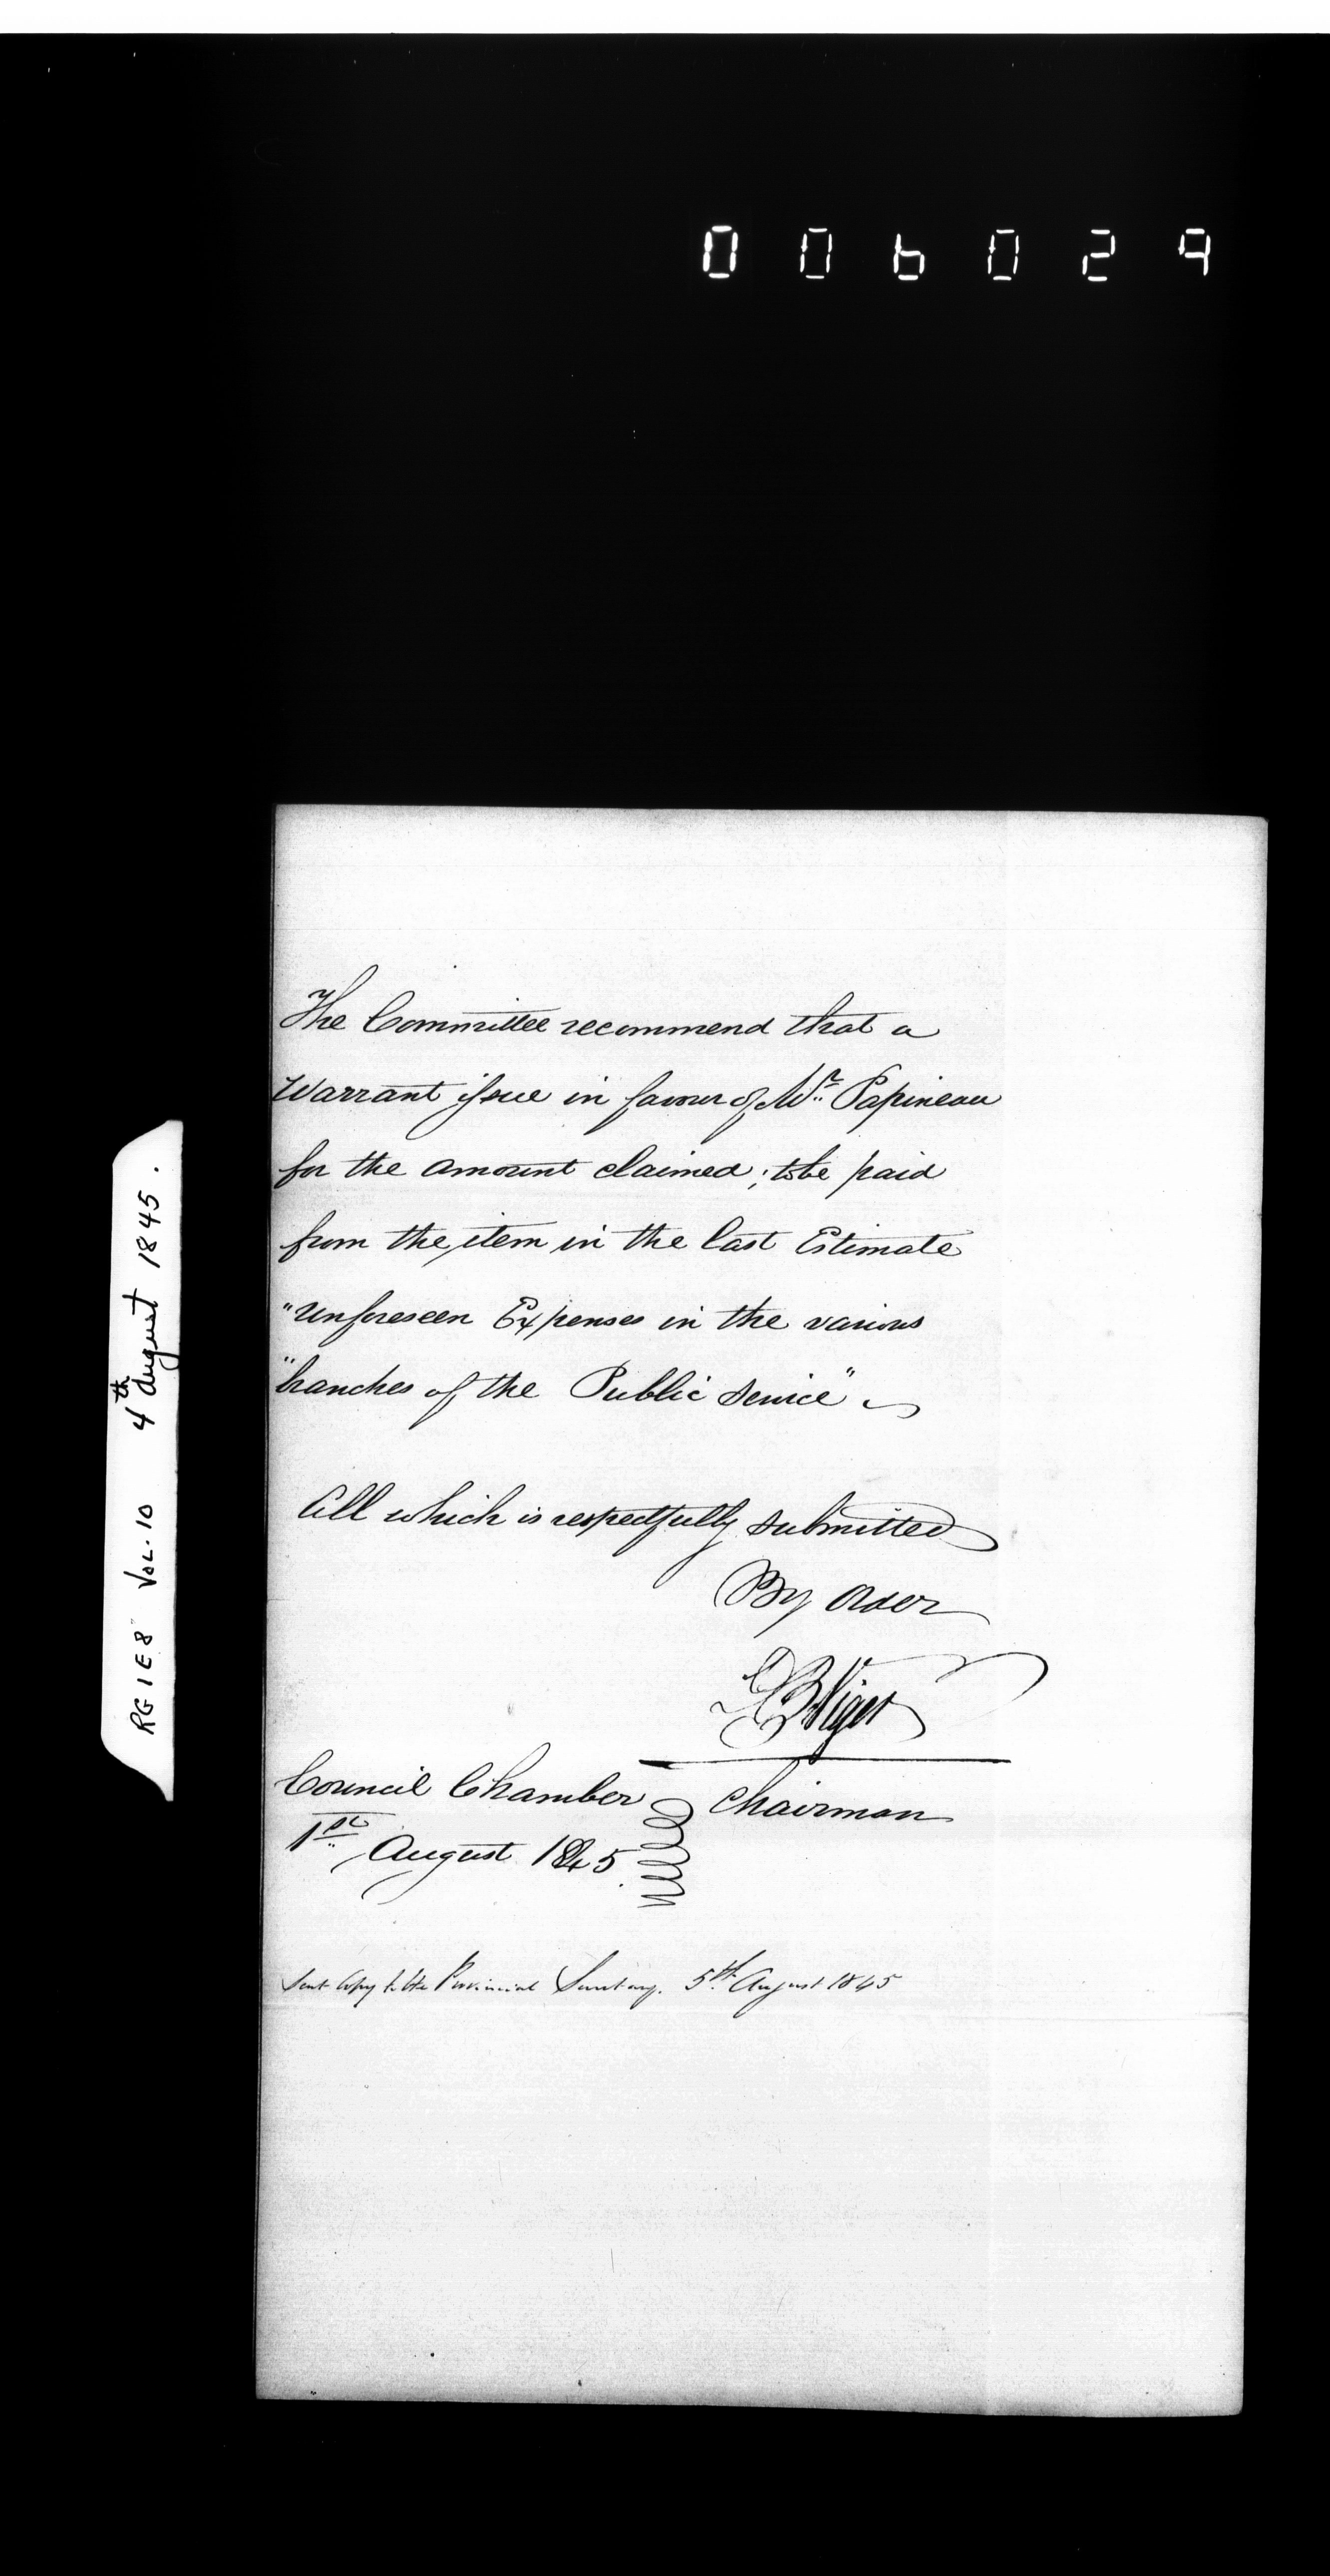 006029
The Committee recommend that a
Warrant issue in favour of Mr. Papineau
for the amount claimed; to be paid
from the item in the last Estimate
"Unforeseen Expenses in the various
"branches of the Public Service"
All which is respectfully submitted
By Order
DBViger
Council Chamber
Chairman
1st August 1845.
Sent Copy to the Provincial Secretary. 5th August 1845
RG1E8 VOL.10 4th August 1845.